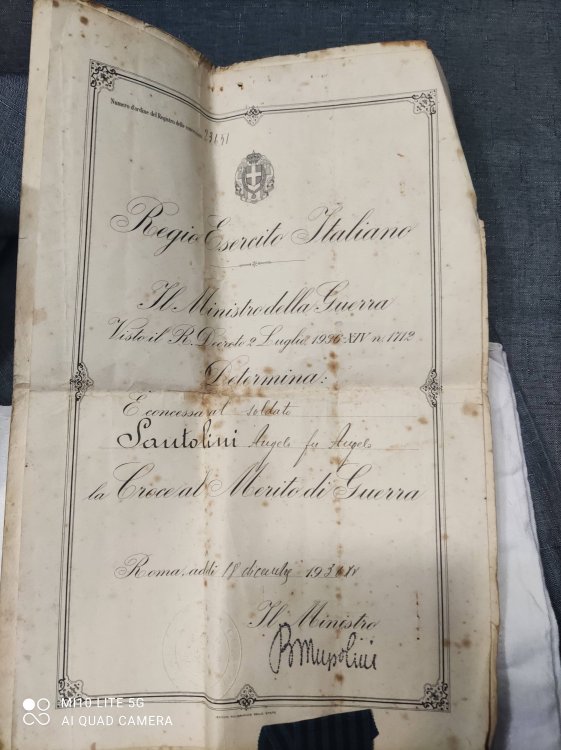 Numero d'ordine del Registro delle concessioni
Regio Esercito Italiano
Il Ministro della Guerra
Visto il R. Decreto 2 Luglio 1936-XIV n. 1712
Determina:
È concessa al soldato
Santolini Angelo fu Angelo
la Croce al Merito di Guerra
Roma, addì 18 dicembre 1936 XV
Il Ministro
BMussolini
MI 10 LITE 5G
AI QUAD CAMERA